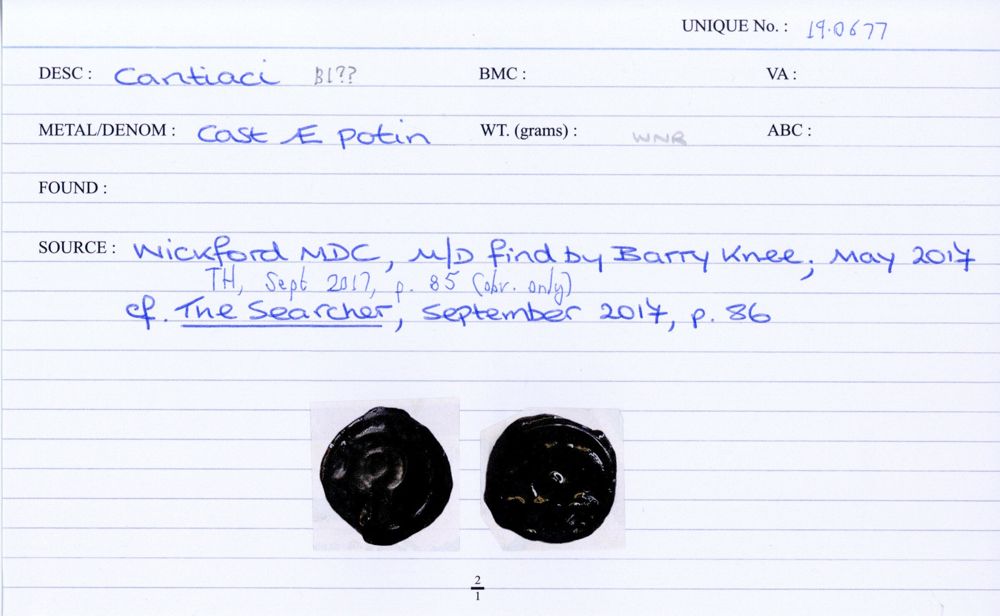 UNIQUE No. : 19.0677
DESC : Cantiaci B1?? BMC : VA :
METAL/DENOM : Cast Æ potin WT. (grams) : WNR ABC :
FOUND :
SOURCE : Wickford MDC, M/D find by Barry Knee, May 2017
TH, Sept 2017, p. 85 (obv. only)
cf. The Searcher, September 2017, p. 86
2
1